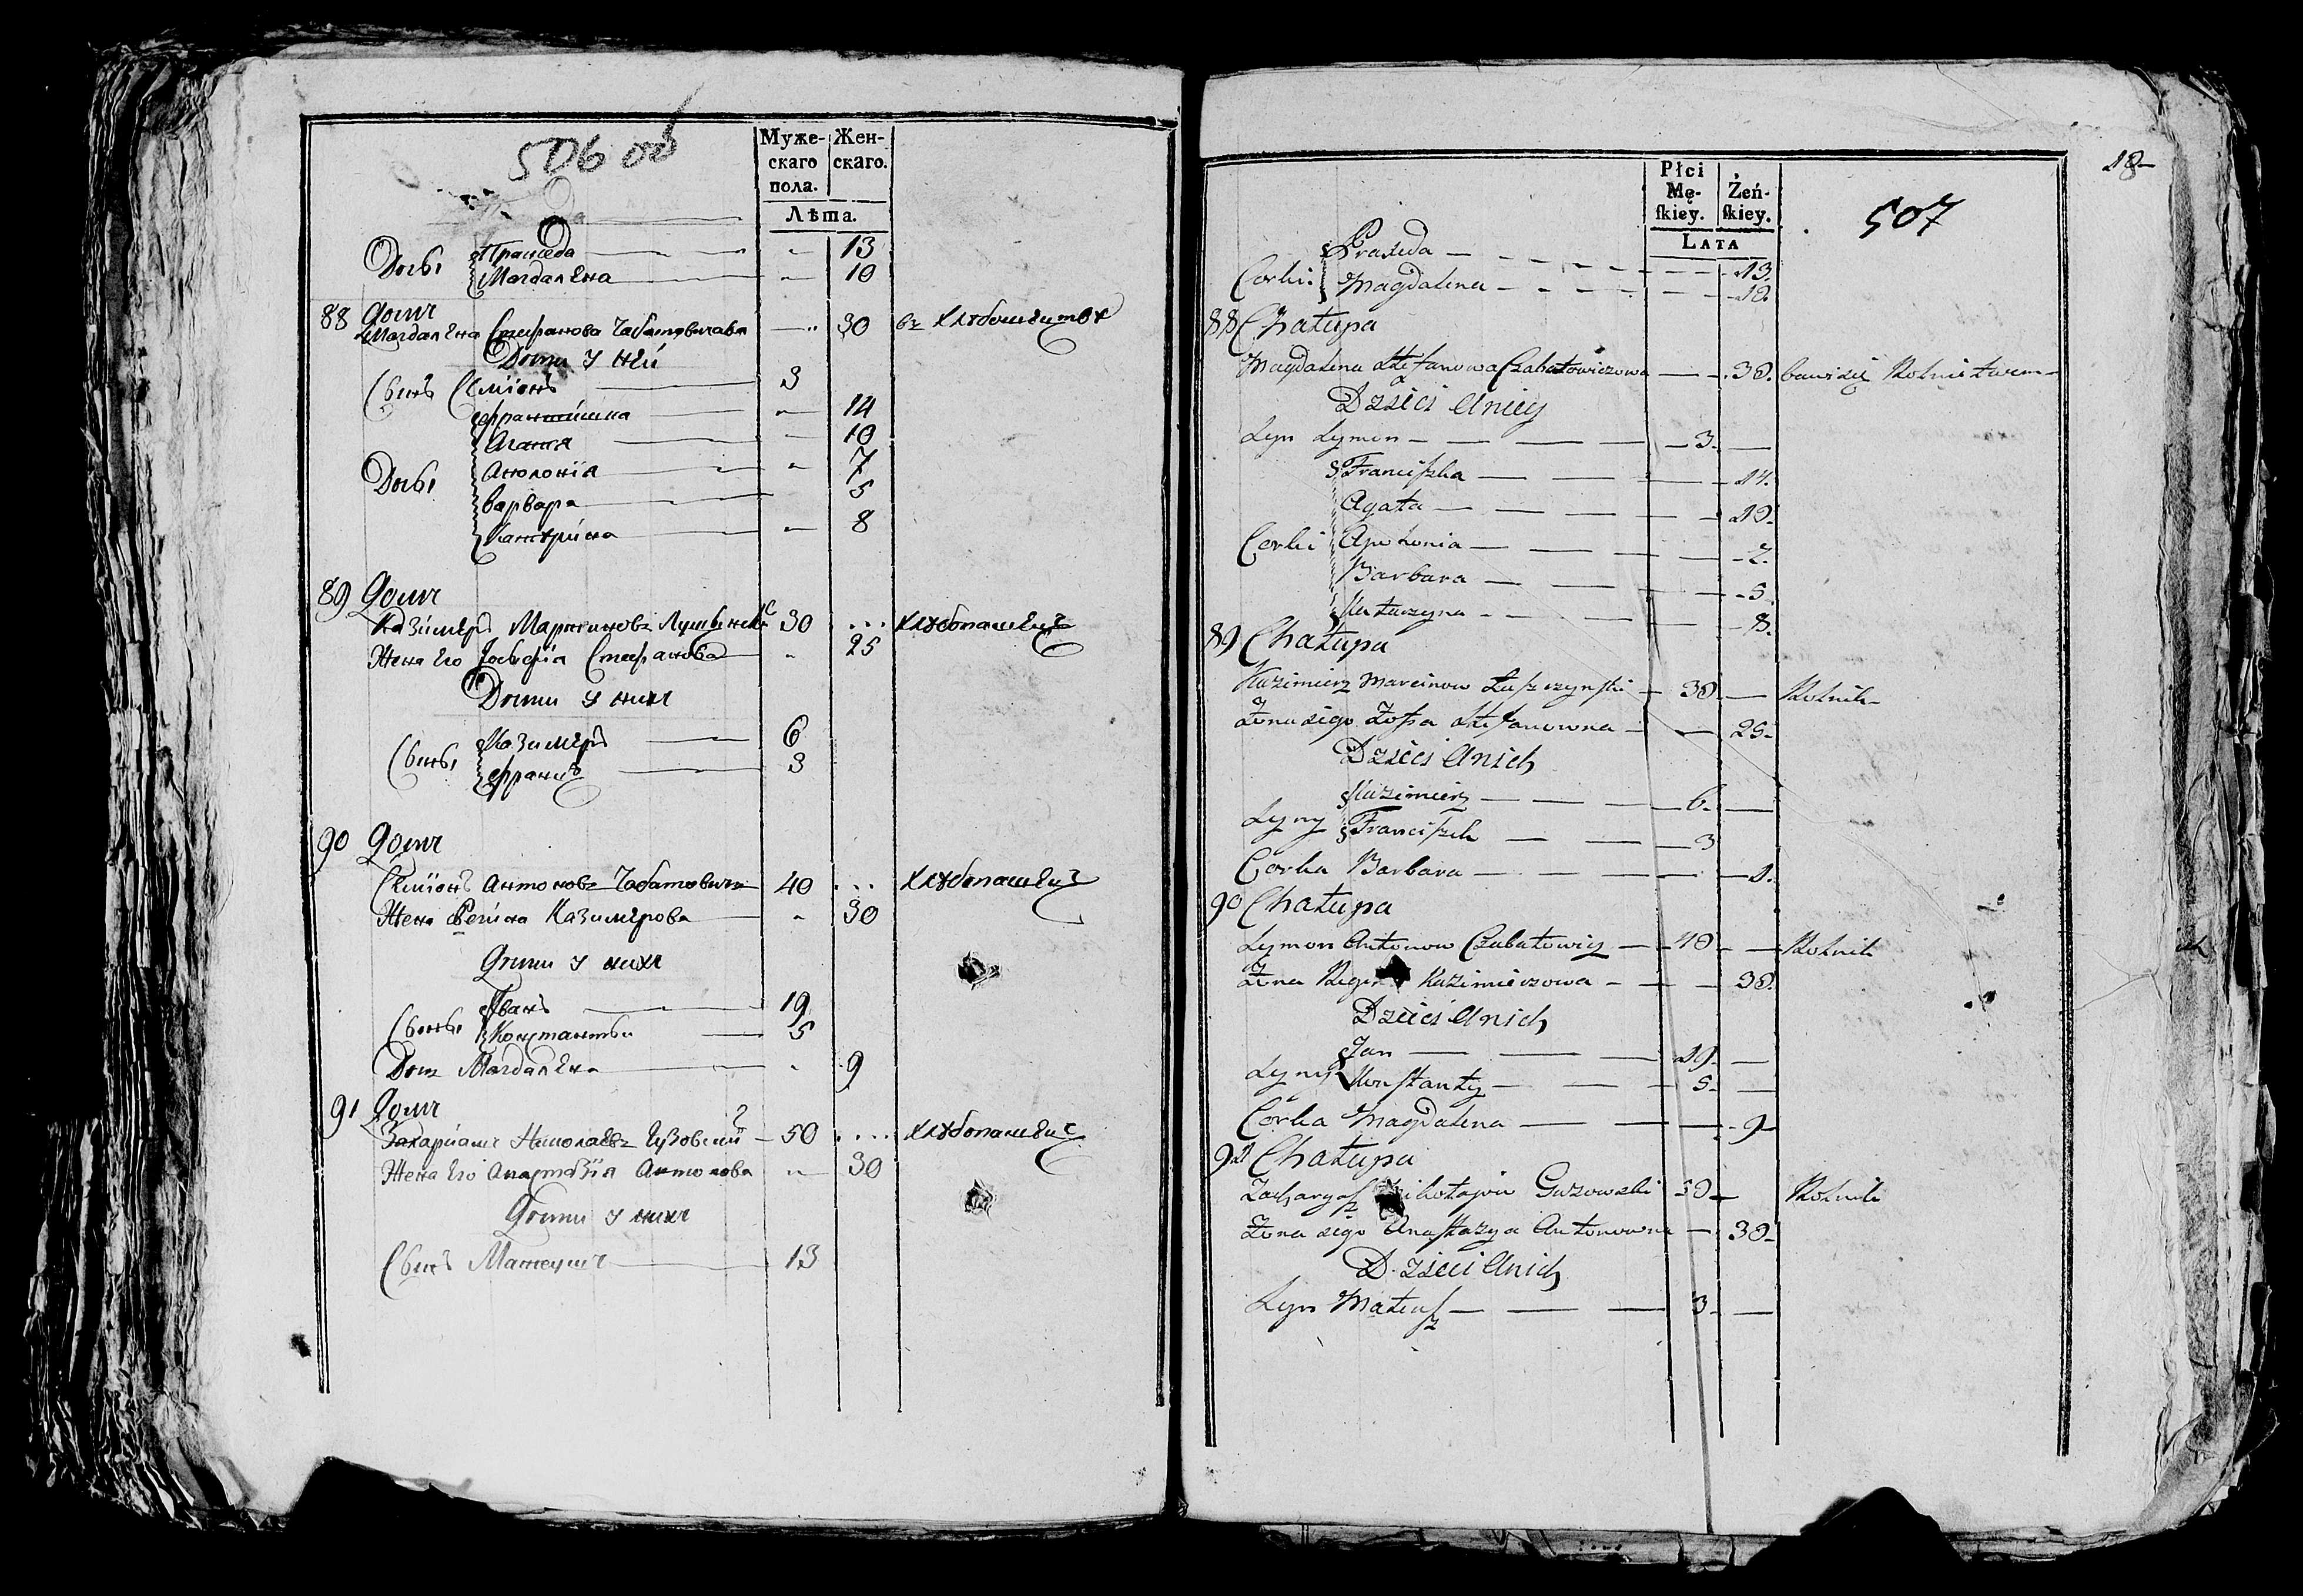 506 об
Муже-
скаго
пола.
Жен-
скаго.
Лѣта.
Пракседа — 13
Дочьри Магдалена — 10
88 Домъ
Магдалена Стефанова Чабатовичова — 30 въ хлѣбопашествѣ
Дѣти у ней
Сынъ Семіонъ — 3
Францишка — 14
Агата — 10
Дочьри Аполонія — 7
Варвара — 5
Катерина — 8
89 Домъ
Казимеръ Мартиновъ Лущинскій 30 хлѣбопашецъ
Жена Его Зофія Стефанова 25
Дѣти у нихъ
Казимеръ — 6
Сыны Францъ — 3
90 Домъ
Семіонъ Антоновъ Чабатовичъ 40 хлѣбопашецъ
Жена Регина Казимерова — 30
Дѣти у нихъ
Иванъ — 19
Сыны Константы — 5
Дочь Магдалена — 9
91 Домъ
Захаріашъ Николаевъ Гузовскій — 50 хлѣбопашецъ
Жена Его Анастазія Антонова — 30
Дѣти у нихъ
Сынъ Матеушъ — 13
18
Płci
Mę-
ſkiey.
Żeń-
ſkiey.
507
LATA
Praxeda — 13.
Corki: Magdalena — 10.
88 Chałupa
Magdalena Stefanowa Czabatowiczowa — 30. bawi się Rolnictwem
Dzieci u niey
Syn Symon — 3. —
Franciſzka — 14.
Agata — 10.
Corki Apolonia — 7.
Barbara — 5.
Katarzyna — 8.
89 Chałupa
Kazimierz Marcinow Łuſzczynſki — 30. — Rolnik
Żona iego Zofia Stefanowna — 25.
Dzieci u nich
Kazimierz — 6. —
Syny Franciſzek — 3
Corka Barbara — 1.
90 Chałupa
Symon Antonow Czabatowicz — 40 — Rolnik
Żona Kazimierzowa — 30.
Dzieci u nich
Jan — 19. —
Syny Konſtanty — 5. —
Córka Magdalena — 9
91 Chałupa
Zacharyaſz Guzowski 50 — Rolnik
Żona iego Anaſtazya Antonowna — 30.
Dzieci u nich
Syn Mateuſz — 3. —